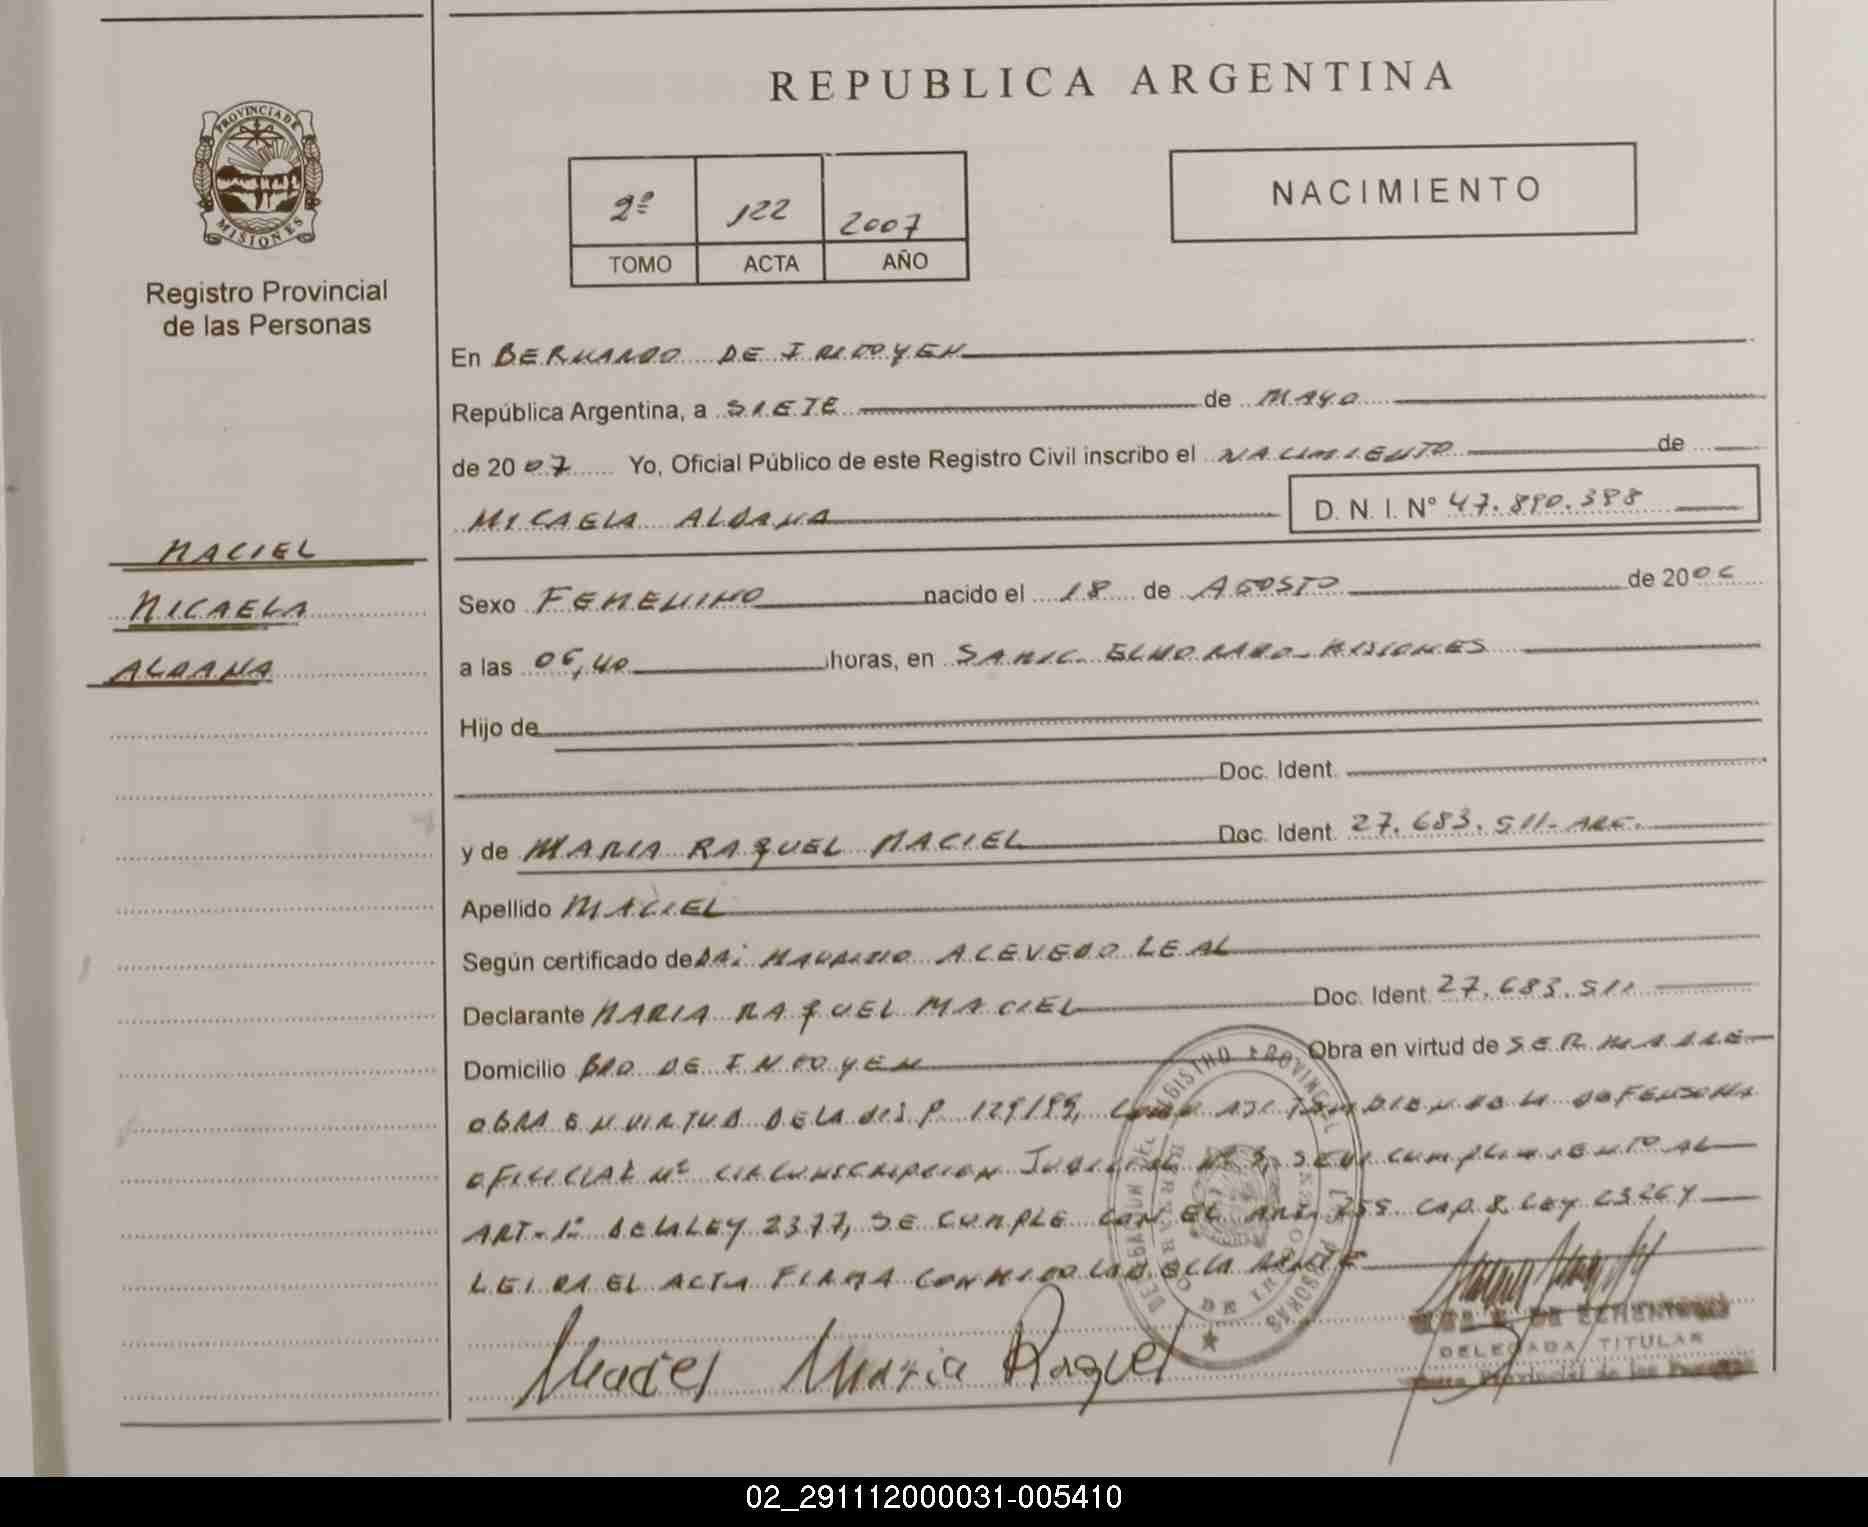 REPUBLICA ARGENTINA
PROVINCIA DE
MISIONES
Registro Provincial
de las Personas
2º 122 2007
TOMO ACTA AÑO
NACIMIENTO
En BERNARDO DE IRIGOYEN
República Argentina, a SIETE de MAYO
de 2007 Yo, Oficial Público de este Registro Civil inscribo el NACIMIENTO de
MICAELA ALDANA D. N. I. Nº 47.890.388
MACIEL
MICAELA
ALDANA
Sexo FEMENINO nacido el 18 de AGOSTO de 2006
a las 06,40 horas, en SANIC. ELDORADO-MISIONES
Hijo de
Doc. Ident.
y de MARIA RAQUEL MACIEL Doc. Ident. 27.683.511-ARG.
Apellido MACIEL
Según certificado de DR: MAURICIO ACEVEDO LEAL
Declarante MARIA RAQUEL MACIEL Doc. Ident. 27.683.511
Domicilio BDO DE IRIGOYEN Obra en virtud de SER MADRE
OBRA EN VIRTUD DE LA DISP. 129/99, COMO ASI TAMBIEN DE LA DEFENSORIA
OFICIAL Nº CIRCUNSCRIPCION JUDICIAL Nº SE DI CUMPLIMIENTO AL
ART-1º DE LA LEY 2377, SE CUMPLE CON EL ART. 255 CAP. 8. LEY 23264
LEIDA EL ACTA FIRMA CONMIGO LA
Maciel Maria Raquel
DELEGADA TITULAR
Provincial de las
02_291112000031-005410